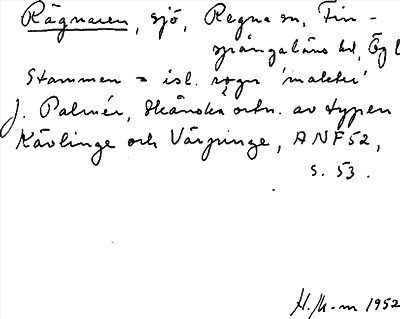 Rägnaren, sjö, Regna sn, Fin-
spångaläns hd, Ögl
Stammen = isl. rǫgn 'makter'
J. Palmér, Skånska ortn. av typen
Kävlinge och Värpinge, ANF 52,
s. 53.
H. 1952